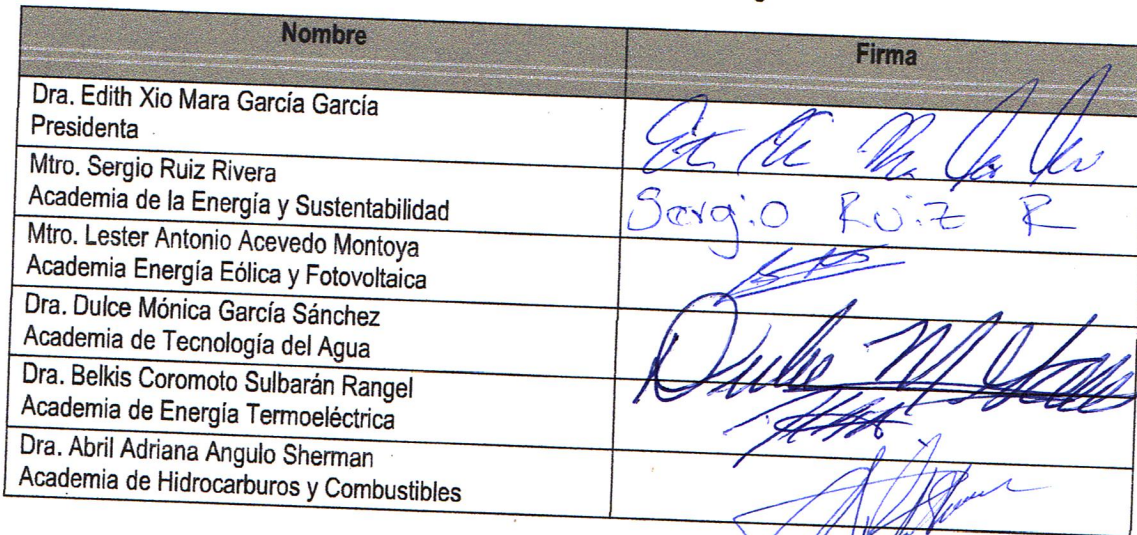 Nombre
Firma
Dra. Edith Xio Mara García García
Presidenta
Mtro. Sergio Ruiz Rivera
Academia de la Energía y Sustentabilidad
Sergio Ruiz R
Mtro. Lester Antonio Acevedo Montoya
Academia Energía Eólica y Fotovoltaica
Dra. Dulce Mónica García Sánchez
Academia de Tecnología del Agua
Dra. Belkis Coromoto Sulbarán Rangel
Academia de Energía Termoeléctrica
Dra. Abril Adriana Angulo Sherman
Academia de Hidrocarburos y Combustibles